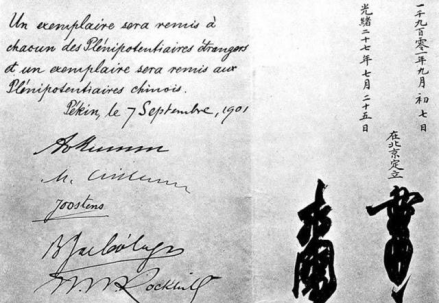 Un exemplaire sera remis à
chacun des Plénipotentiaires étrangers
et un exemplaire sera remis aux
Plénipotentiaires chinois.
Pékin, le 7 Septembre, 1901
Joostens
Rockhill
一千九百零一年九月初七日
在北京定立
光緒二十七年七月二十五日